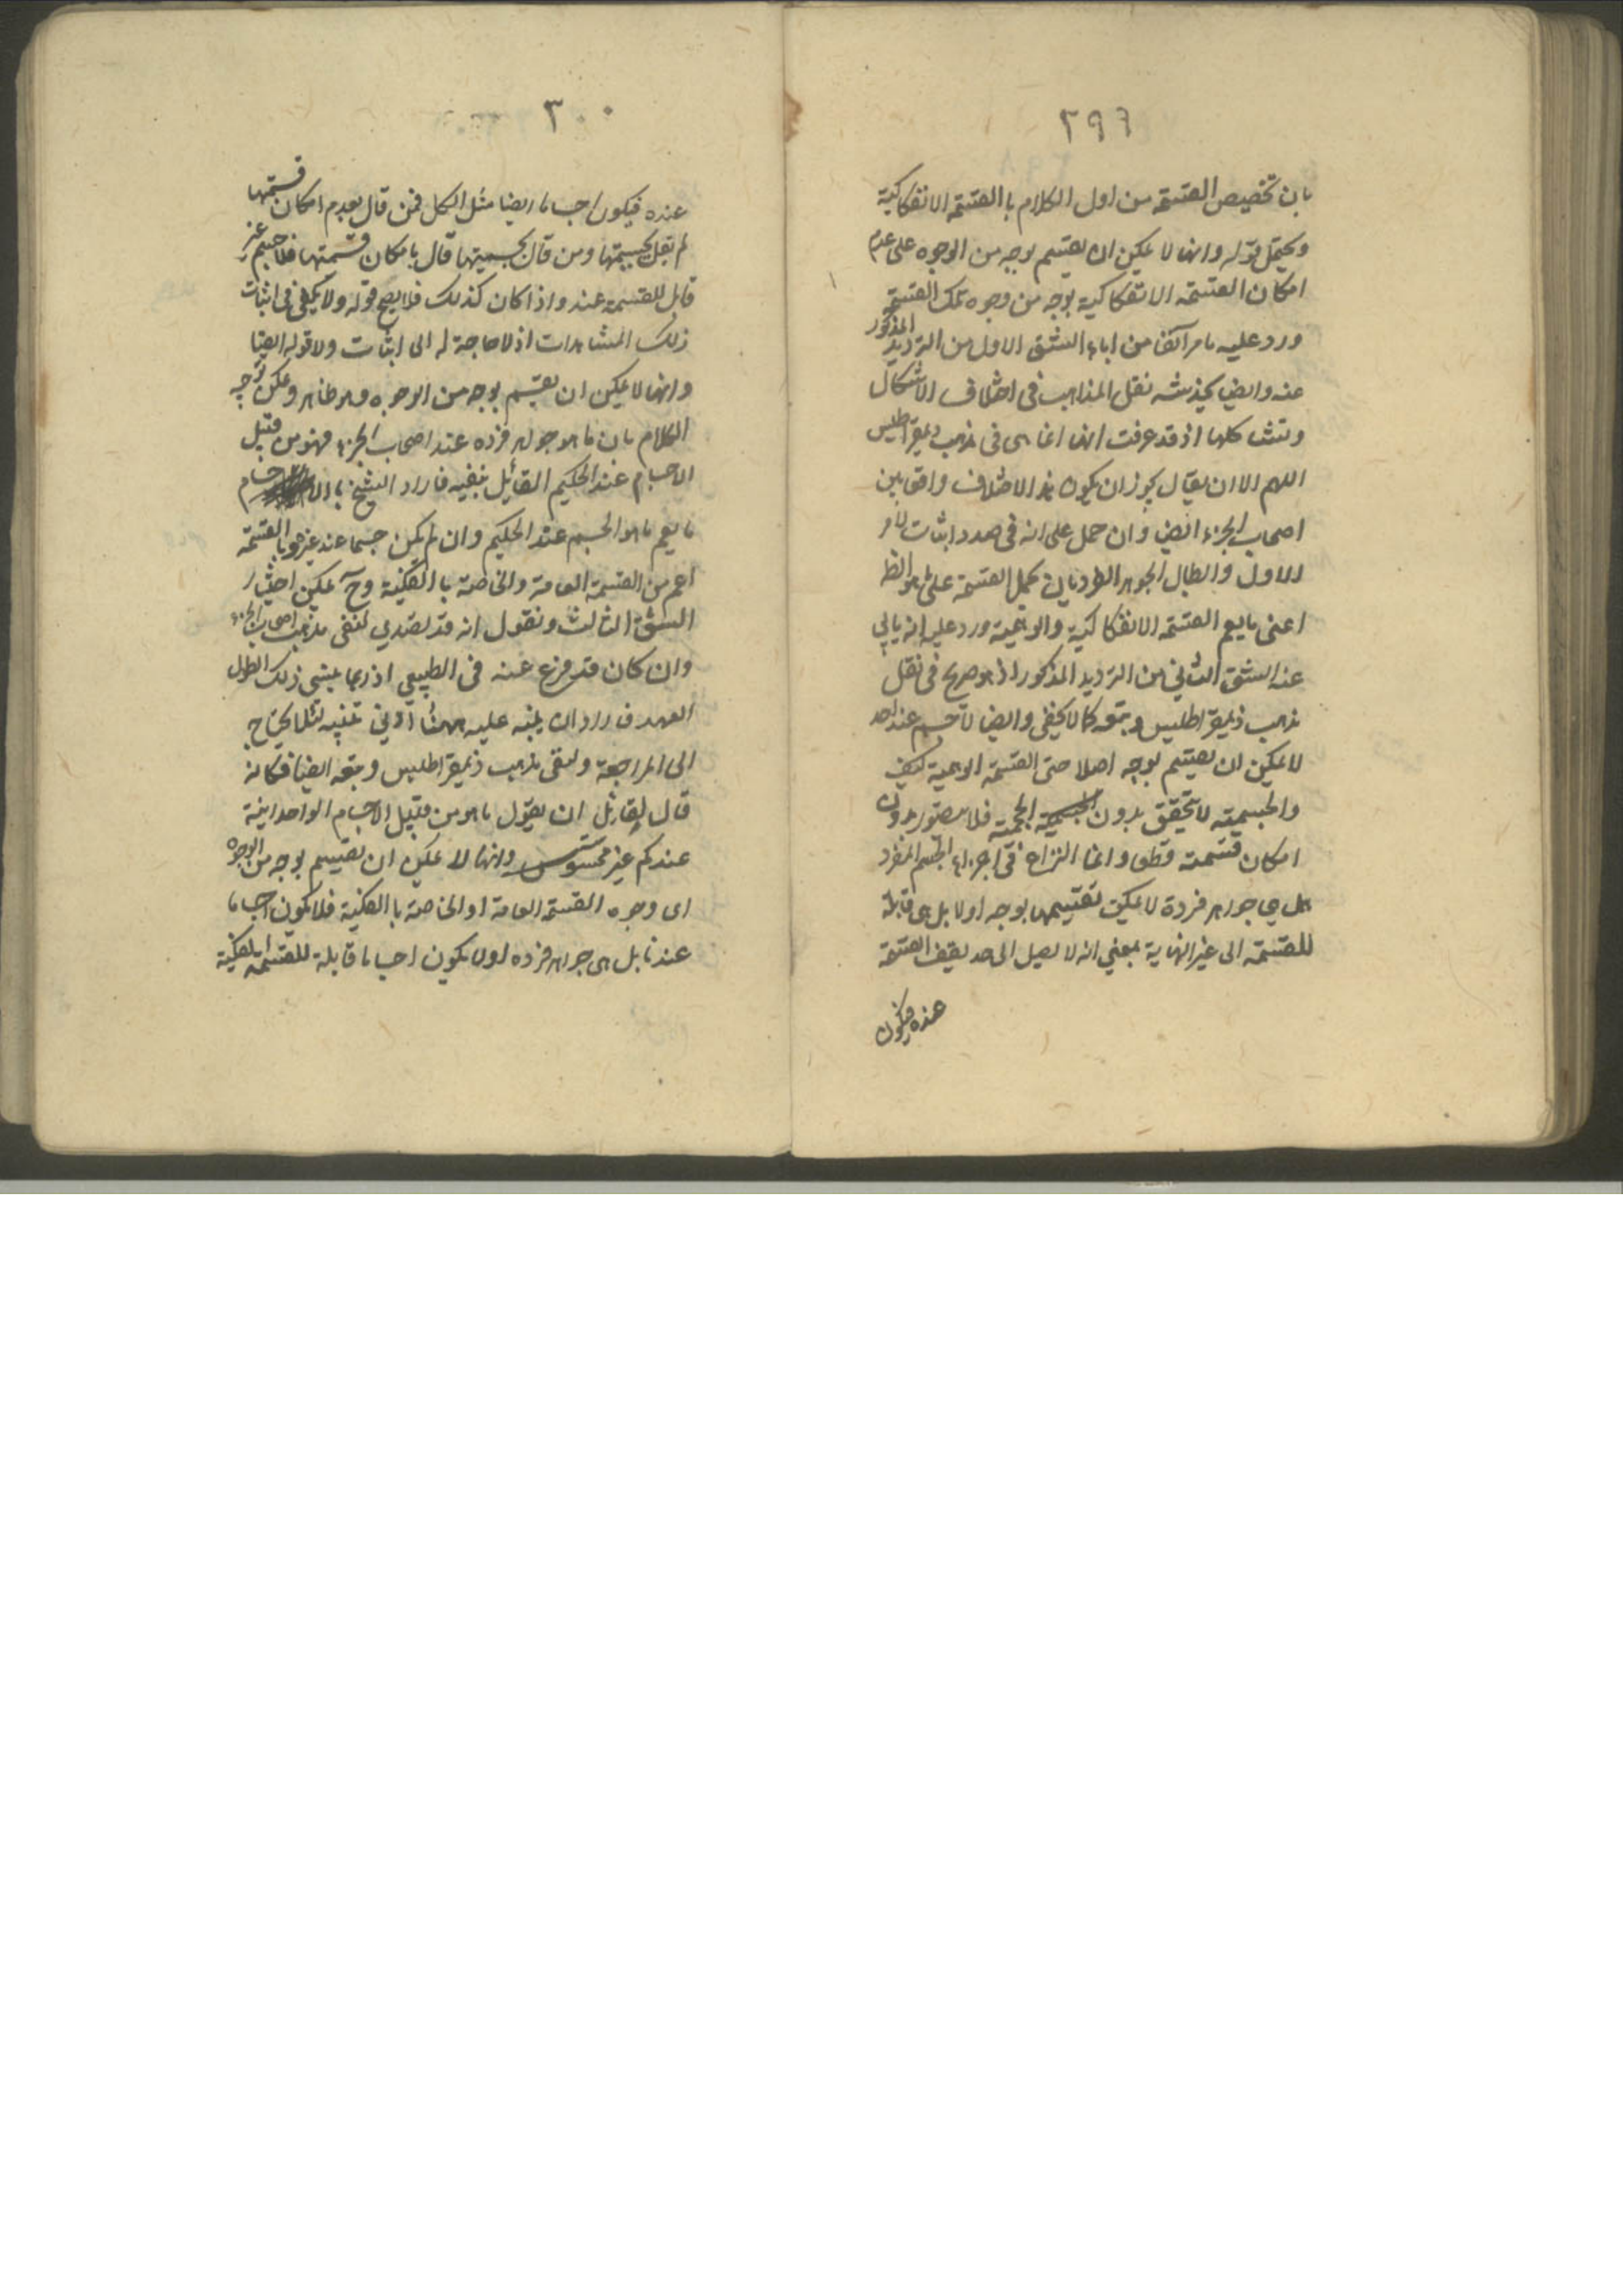 ٢٩٩
بان تخصيص القسمة من اول الكلام با القسمة الانفكاكية
ويحتمل قوله وانها لا يمكن ان يقسم بوجه من الوجوه على عدم
امكان القسمة الانفكاكية بوجه من وجوه تلك القسمة
ورد عليه ما مر آنفا من اباء الشق الاول من الترديد المذكور
عنه وايض يخدشه نقل المذاهب فى اختلاف الاشكال
وتشاكلها اذ قد عرفت انها انما هى فى مذهب ذيمقراطيس
اللهم الا ان يقال يجوز ان يكون هذا الاختلاف واقعا بين
اصحاب الجزء ايضا وان حمل على انه فى صدد اثبات الامر
الاول وابطال الجوهر الفرد بان يحمل القسمة على ما هو الظ
اعنى ما يعم القسمة الانفكاكية والوهمية ورد عليه انه يابى
عنه الشق الثانى من الترديد المذكور اذ هو صريح فى نقل
مذهب ذيمقراطيس وتبعه كما لا يخفى وايضا لا جسم عند احد
لا يمكن ان يقسم بوجه اصلا حتى القسمة الوهمية كيف
والجسمية لا تتحقق بدون الجسمية الحجمية فلا يتصور بدون
امكان قسمته قطعا وانما النزاع فى اجزاء الجسم المفرد
هل هي جواهر فردة لا يمكن تقسيمها بوجه اولا بل هى قابلة
للقسمة الى غير النهاية بمعنى انه لا يصل الى حد يقف القسمة
عنده فيكون
٣٠٠
عنده فيكون اجساما ايضا مثل الكل فمن قال بعدم امكان قسمتها
لم يقل بجسيمتها ومن قال بجسميتها قال بامكان قسمتها فلا جسم غير
قابل للقسمة عند واذا كان كذلك فلا يصح قوله ولا يكفى فى اثبات
ذلك المشاهدات اذ لا حاجة له الى اثبات ولا قوله ايضا
وانها لا يمكن ان يقسم بوجه من الوجوه وهو ظاهر ويمكن توجيه
الكلام بان ما هو جواهر فرده عند اصحاب الجزء فهو من قبيل
الاجسام عند الحكيم القائل بنفيه فاراد الشيخ با الاجسام
ما يعم ما هو الجسم عند الحكيم وان لم يكن جسما عند غيره وبا القسمة
اعم من القسمة العامة والخاصة با الفكية وح يمكن اختيار
الشق الثالث ونقول انه قد تصدى لنفى مذهب اصحاب الجزء
وان كان قد فرغ عنه فى الطبيعي اذ ربما ينسى ذلك لطول
العهد فاراد ان ينبه عليه ههنا ادنى تنبيه لئلا يحتاج
الى المراجعة ولنفى مذهب ذيمقراطيس وتبعه ايضا فكانه
قال لقائل ان يقول ما هو من قبيل الاجسام الواحدانية
عندكم غير محسوس وانها لا يمكن ان يقسم بوجه من الوجوه
اى وجوه القسمة العامة او الخاصة با الفكية فلا يكون اجساما
عندنا بل هى جواهر فرده اولا يكون اجساما قابلة للقسمة الفكية